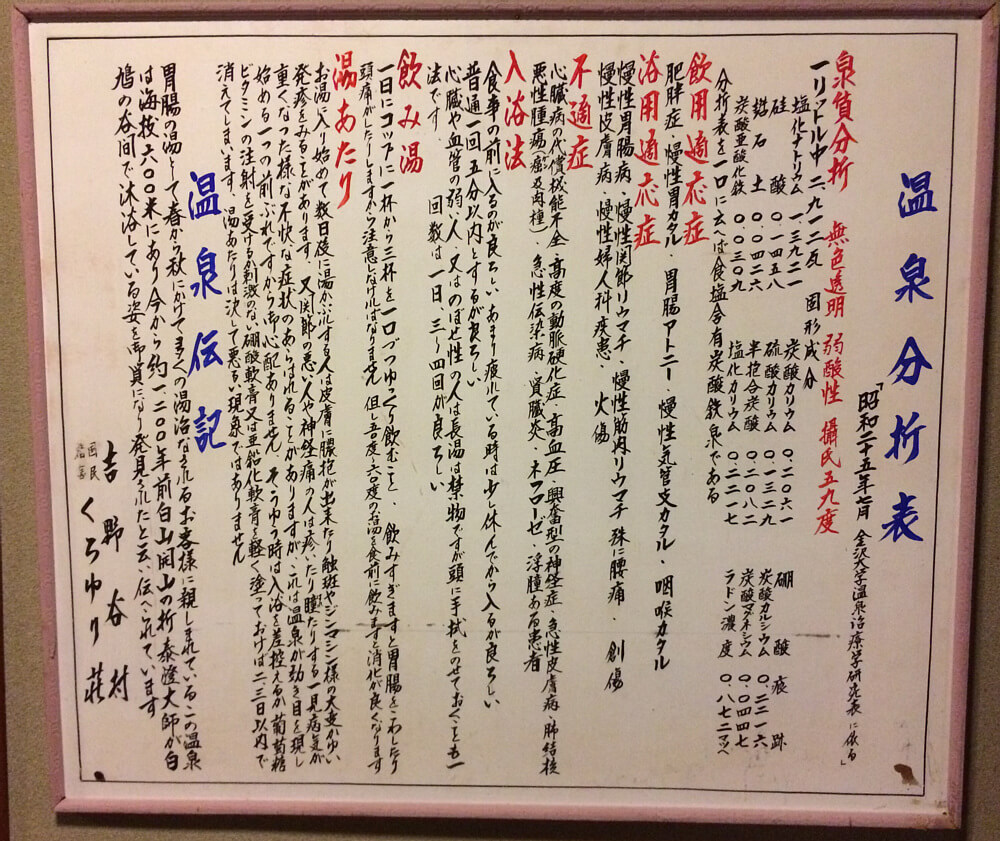 温泉分析表
「昭和二十五年七月 金沢大学温泉治療学研究表に依る」
泉質分析 無色透明 弱酸性 攝氏五九度
一リットル中 二、九一二瓦 固形成分
塩化ナトリウム 一、三九二一 炭酸カリウム 〇.二〇六一 硼酸 痕跡
硅酸 〇.一四五八 硫酸カリウム 〇.一三二九 炭酸カルシウム 〇.二三一六
礬石土 〇.〇四二六 半抱合炭酸 〇.二〇八二 炭酸マグネシウム 〇.〇四四七
炭酸亜酸化鉄 〇.〇三〇九 塩化カリウム 〇.二二一七 ラドン濃度 〇.八七二マッヘ
分析表を一口に云へば食塩含有炭酸鉄泉である
飲用適応症
肥胖症・慢性胃カタル・胃腸アトニー・慢性気管支カタル・咽喉カタル
浴用適応症
慢性胃腸病・慢性関節リウマチ・慢性筋肉リウマチ・殊に腰痛・創傷
慢性皮膚病・慢性婦人科疾患・火傷
不適応症
心臓病の代償機能不全・高度の動脈硬化症・高血圧・興奮型の神経症・急性皮膚病・肺結核
悪性腫瘍(癌及肉腫)・急性伝染病・腎臓炎・ネフローゼ・浮腫ある患者
入浴法
食事の前に入るのが良ろしい、あまり疲れている時は少し休んでから入るが良ろしい
普通一回五分以内とするが良ろしい
心臓や血管の弱い人、又はのぼせ性の人は長湯は禁物ですが頭に手拭をのせておくことも一
法です。 回数は一日、三〜四回が良ろしい
飲み湯
一日にコップに一杯から三杯を一口づつゆっくり飲むこと、飲みすぎますと胃腸をこわしたり
頭痛がしたりしますから注意しなければなりません 但し五〇度〜六〇度の温湯を食前に飲みますと消化が良くなります
湯あたり
お湯に入り始めて数日後に湯かぶれする人は皮膚に膿疱が出来たり蝕斑やジンマシン様の大変かゆい
発疹をみることがあります、又関節の悪い人や神経痛の人は疼いたり腫たりする一見病気が
重くなった様な不快な症状のあらはれることがありますが、これは温泉が効き目を現し
始める一つの前ぶれですから御心配ありません、そうゆう時は入浴を差控えるか葡萄糖
ビタミンの注射を受けるか刺激のない硼酸軟膏又は亜鉛化軟膏を軽く塗っておけば二、三日以内で
消えてしまいます、湯あたりは決して悪るい現象ではありません
温泉伝記
胃腸の湯として春から秋にかけて多くの湯治なされるお客様に親しまれているこの温泉
は海抜六〇〇米にあり今から約一、二〇〇年前白山開山の折泰澄大師が白
鳩の谷間で沐浴している姿を御覧になり発見されたと云い伝へられています
吉野谷村
くろゆり荘